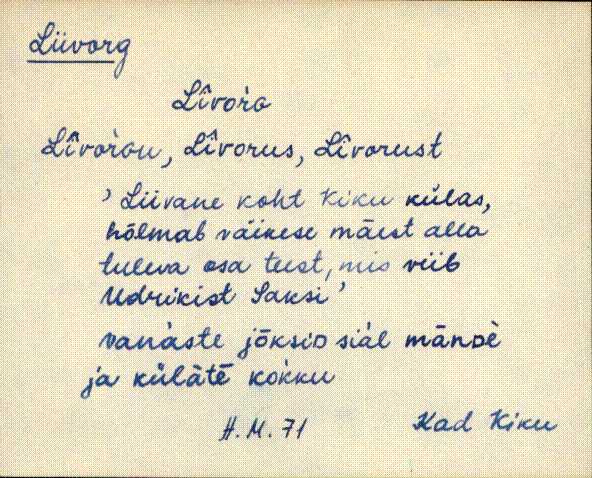 Liivorg
Lîvoro
Lîvorou, Lîvorus, Lîvorust
' Liivane koht Kiku külas,
hõlmab väikese mäest alla
tuleva osa teest, mis viib
Udrikist Saksi '
vanaste jõksiD siäl mändè
ja külätē kokku
H. M. 71 Kad Kiku